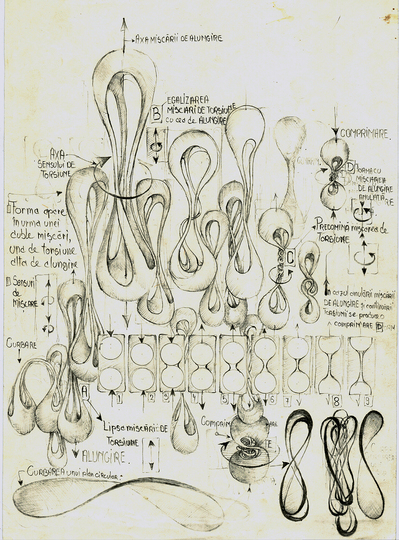 AXA MIȘCĂRII DE ALUNGIRE
B
EGALIZAREA
MIȘCĂRI DE TORSIUNE
cu cea de ALUNGIRE
COMPRIMARE
AXA
SENSULUI DE
TORSIUNE
D
FORMA CU
MIȘCAREA
DE ALUNGIRE
ANULATĂ
Forma apare
în urma unei
duble mișcări,
una de torsiune
alta de alungire
PREDOMINĂ mișcarea de
TORSIUNE
C
Sensuri
de
MIȘCARE
în cazul anulării mișcării
DE ALUNGIRE și continuării
TORSIUNII se produce
COMPRIMARE D
CURBARE
1
2
3
4
5
6
7
8
A
Lipsa mișcării DE
TORSIUNE
ALUNGIRE
CURBAREA unui plan circular